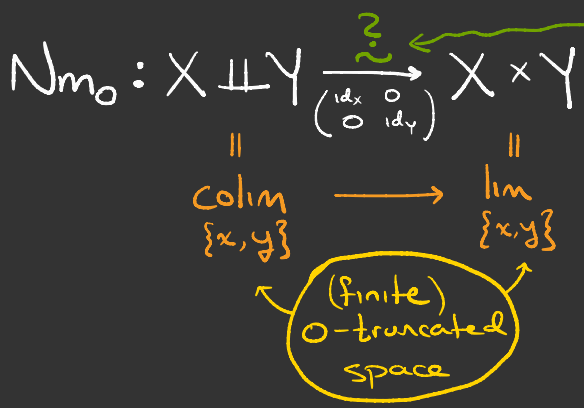 ?
∼
Nm₀ : X ⨿ Y ⟶ X × Y
(id_X 0
0 id_Y)
= =
colim ⟶ lim
{x,y} {x,y}
(finite)
0-truncated
space